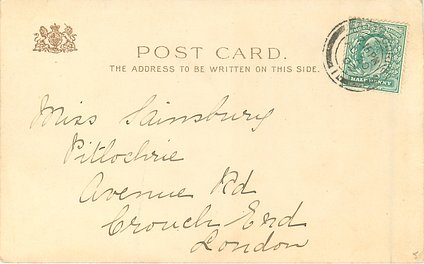 POST CARD.
THE ADDRESS TO BE WRITTEN ON THIS SIDE.
HALFPENNY
Miss Sainsbury
Pitlochrie
Avenue Rd
Crouch End
London